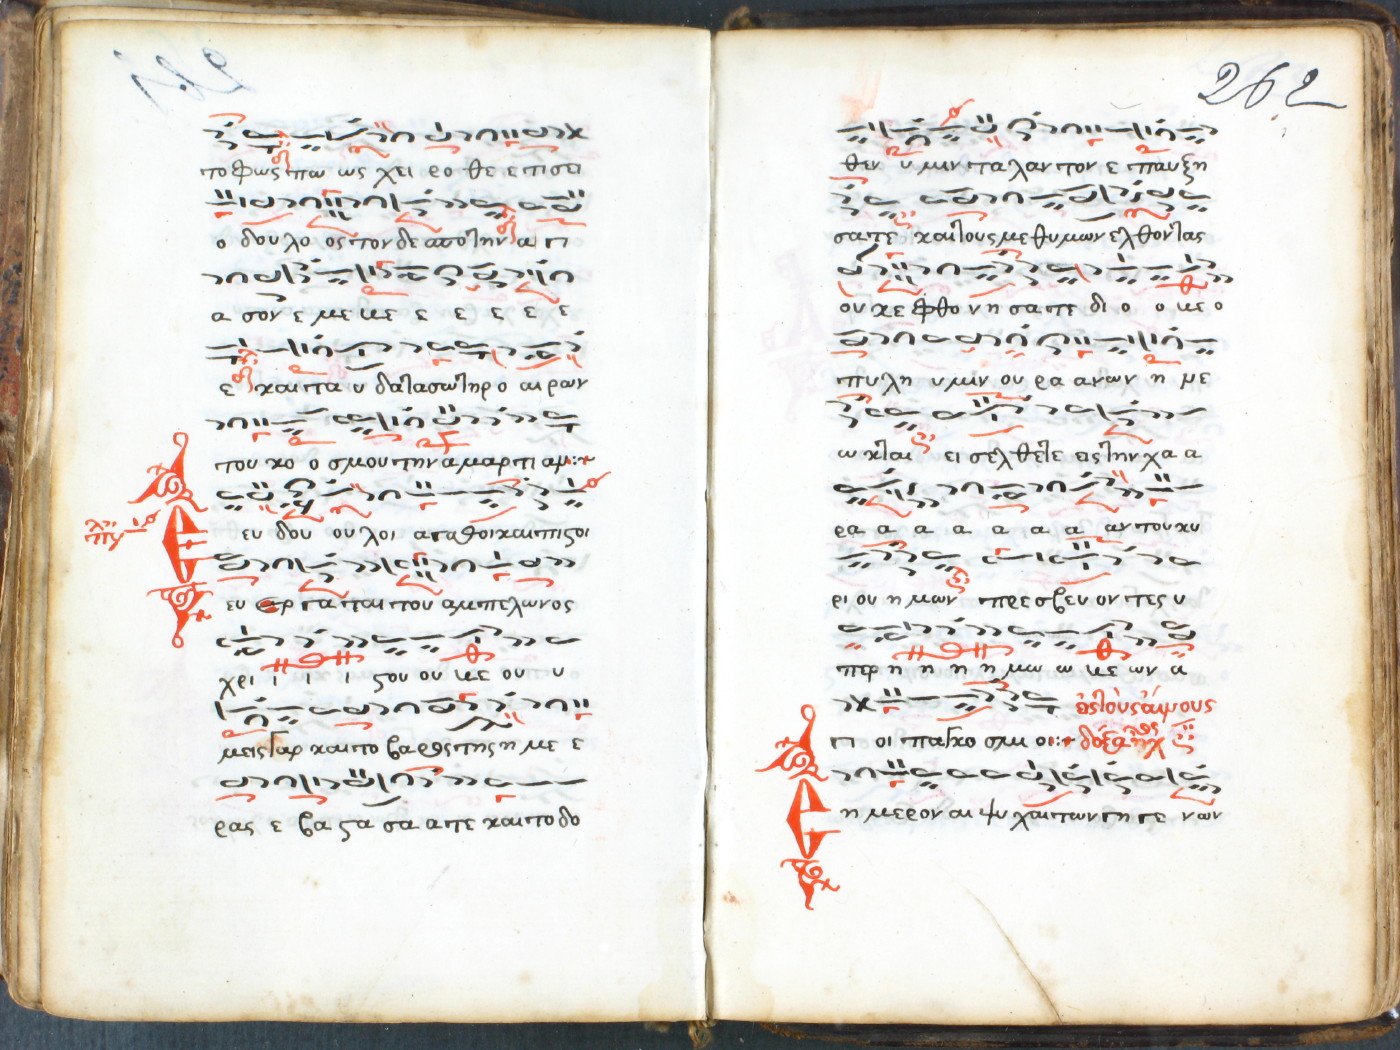 το φως πω ως χει ρο θε ε τι σει
ο δου λο ος τον δε σπο την α π
α σον ε με με ε ε ε ε ε ε
ε και τα υ δα τα σω τηρ ο αι ρων
του κο ο σμου την α μαρ τι αμ:~
ευ δου ου λοι α γα θοι και πι στοι
ευ ερ γα ται του αμ πε λω νος
χρι ι ι ι ι στου ου με ου υ
μεις γαρ και το βα ρος της η με ε
ρας ε βα στα σα α τε και το δο
262
θεν υ μιν τα λαν τον ε πηυ ξη
σα τε και τους με θυ μων ελ θον τας
ουκ ε φθο νη σα τε δι ο ο με ο
πυ λη υ μιν ου ρα α νων η με
ω κται ει σελ θε τε εις την χα α
ρα α α α α α α αν του κυ
ρι ου η μων πρε σβευ ον τες υ
περ η η η η μω ω με ων α
π οι παγ κο σμι οι:~ εις τους αίνους
δόξα ηχ
η με ρον αι ψυ χαι των γη γε νων